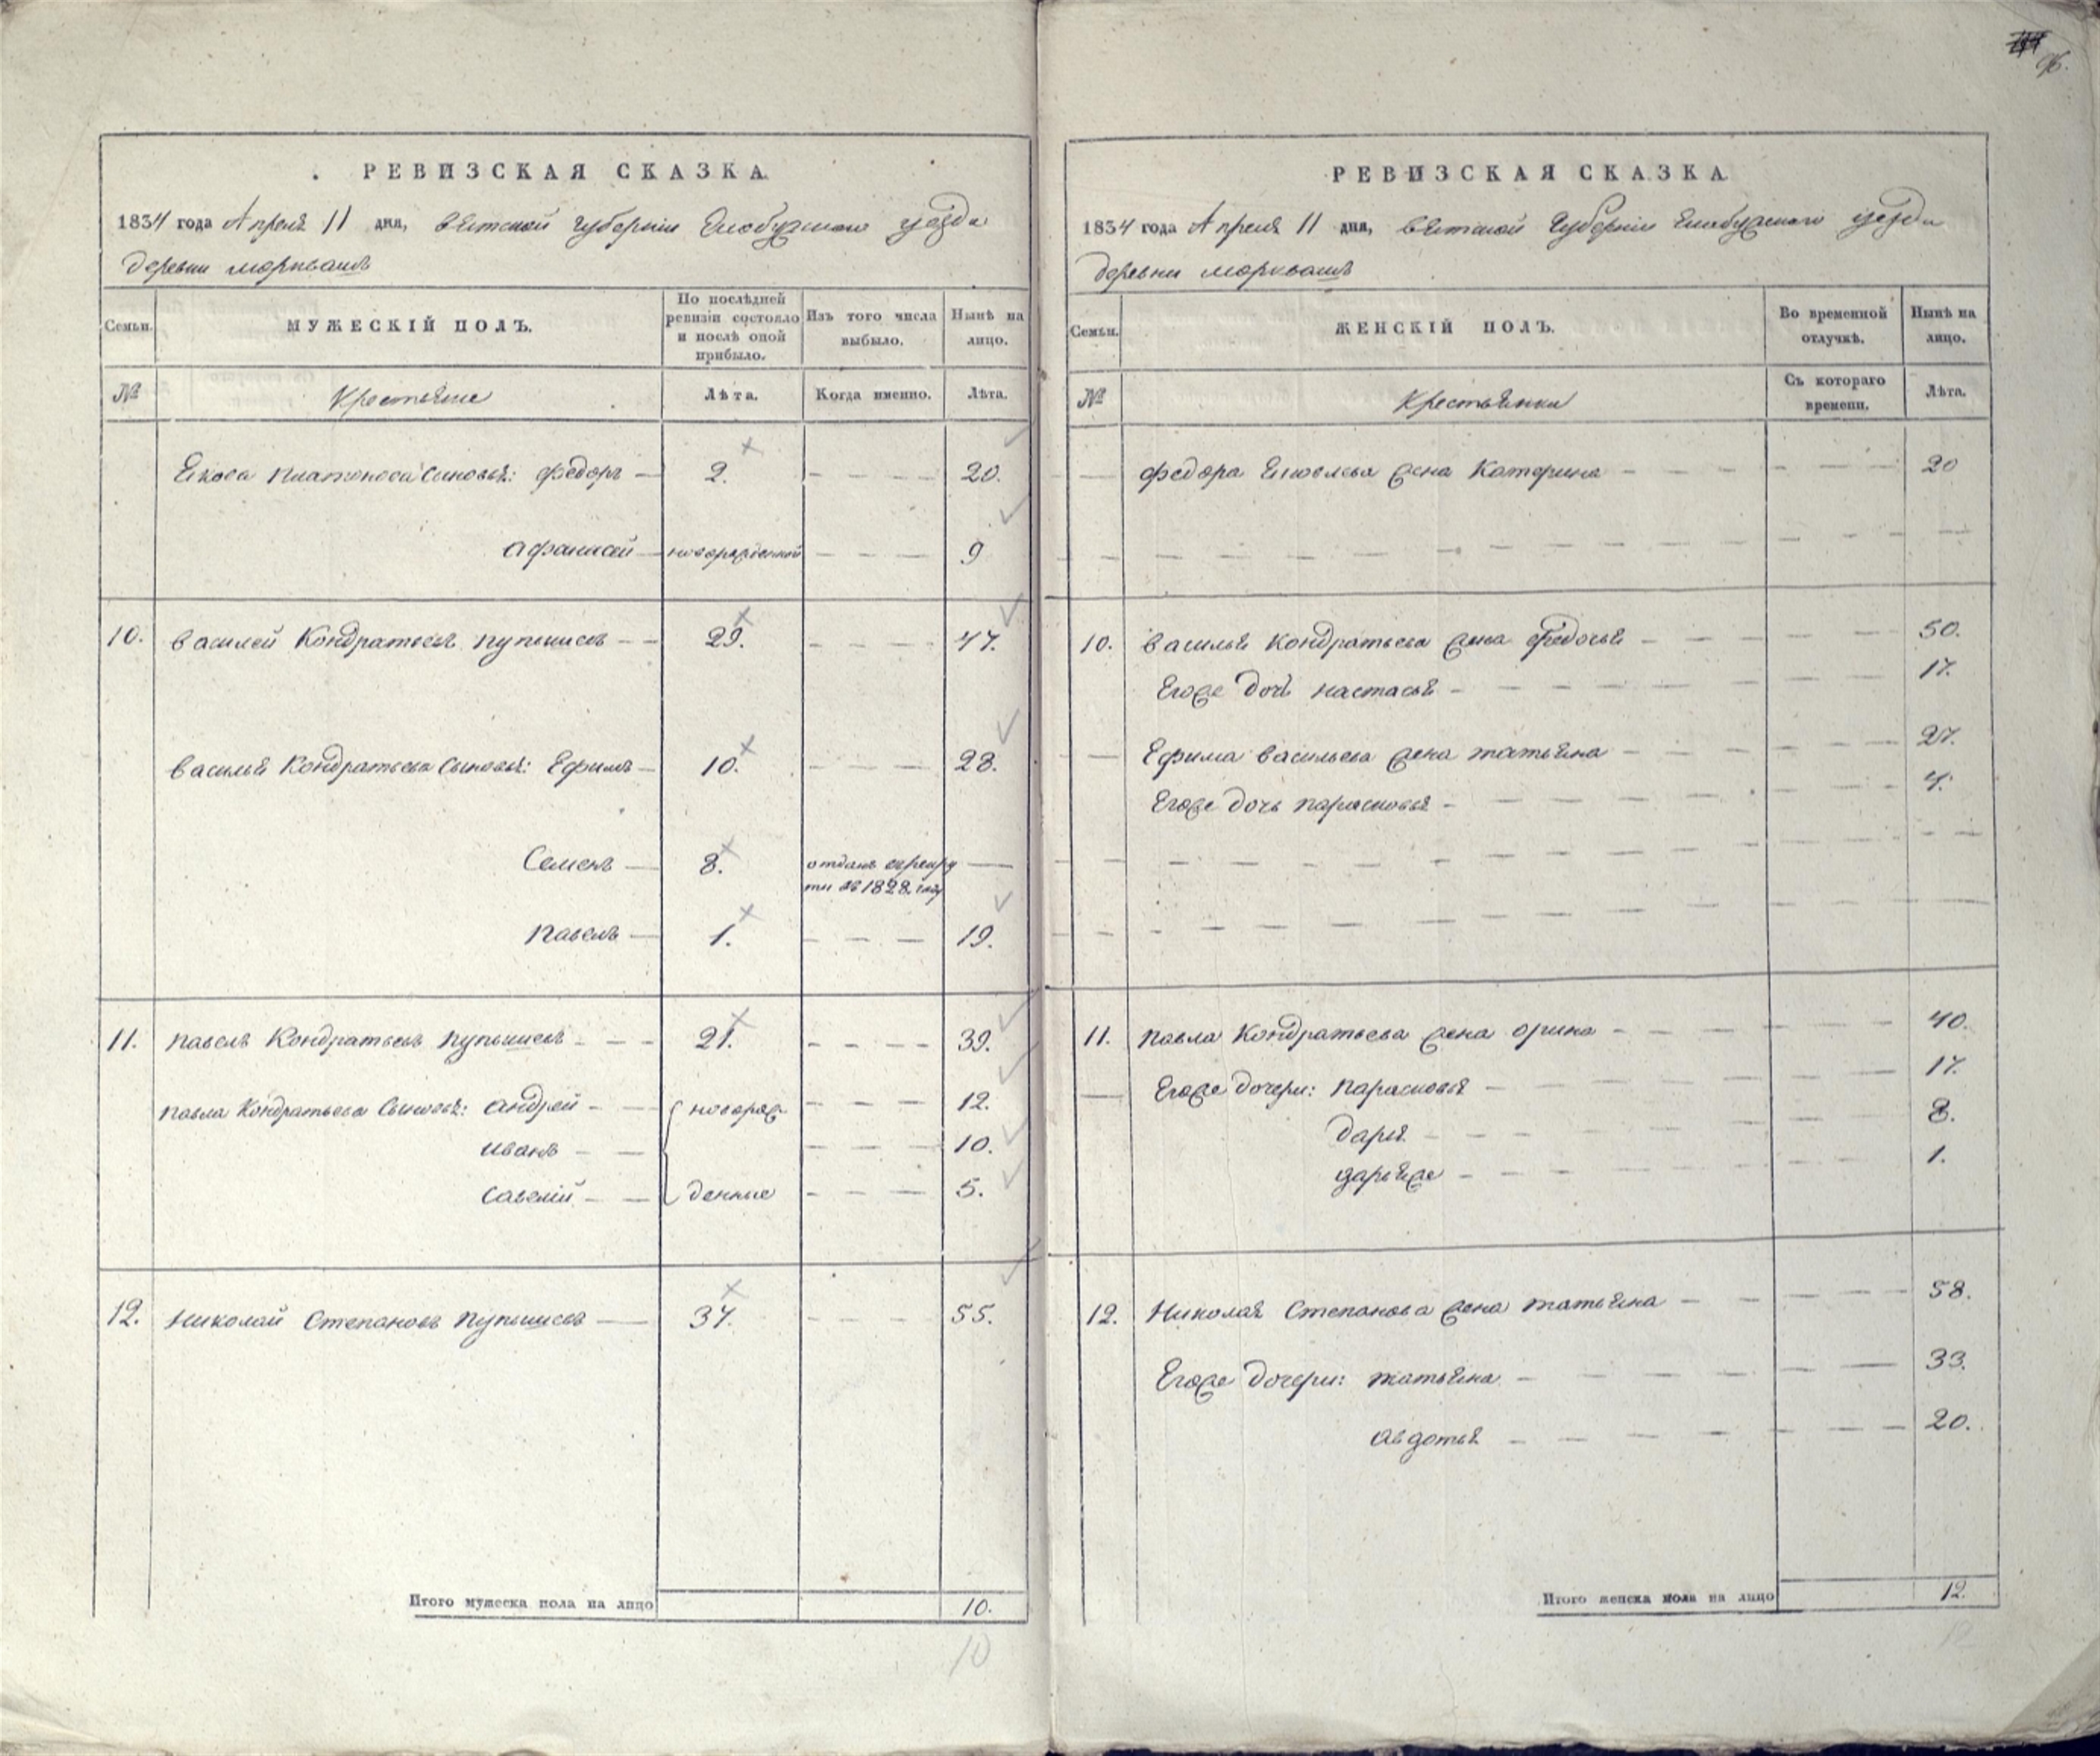 96.
РЕВИЗСКАЯ СКАЗКА.
1834 года Апреля 11 дня, вятской губернии Елабужскаго уезда
деревни моркваш
Семьи.
МУЖЕСКІЙ ПОЛЪ.
По послѣдней ревизіи состояло и послѣ оной прибыло.
Изъ того числа выбыло.
Нынѣ на лицо.
№
Крестьяне
Лѣта.
Когда именно.
Лѣта.
Якова платонова сыновья: федоръ 2. 20.
афанасей новорожденной 9
10. василей Кондратьевъ пупышевъ 29. 47.
василья Кондратьева сыновья: Ефимъ 10. 28.
Семенъ 8. отданъ в рекру
ты в 1828. году
павелъ 1. 19.
11. павелъ Кондратьевъ пупышевъ 21. 39.
павла Кондратьева сыновья: андрей новорож 12.
иванъ 10.
савелій денные 5.
12. Николай Степановъ пупышевъ 37. 55.
Итого мужеска пола на лицо 10.
10
РЕВИЗСКАЯ СКАЗКА.
1834 года Апреля 11 дня, вятской губернии Елабужскаго уезда
деревни моркваш
Семьи.
ЖЕНСКІЙ ПОЛЪ.
Во временной отлучкѣ.
Нынѣ на лицо.
№
Крестьянки
Съ котораго времени.
Лѣта.
федора Яковлева жена Катерина 20
10. василья кондратьева жена федосья 50.
Егоже дочь настасья 17.
Ефима васильева жена татьяна 27.
Егоже дочь парасковья 4.
11. павла Кондратьева жена орина 40.
Егоже дочери: парасковья 17.
дарья 8.
дарья же 1.
12. Николая Степанова жена татьяна 58.
Егоже дочери: татьяна 33.
авдотья 20.
Итого женска пола на лицо 12.